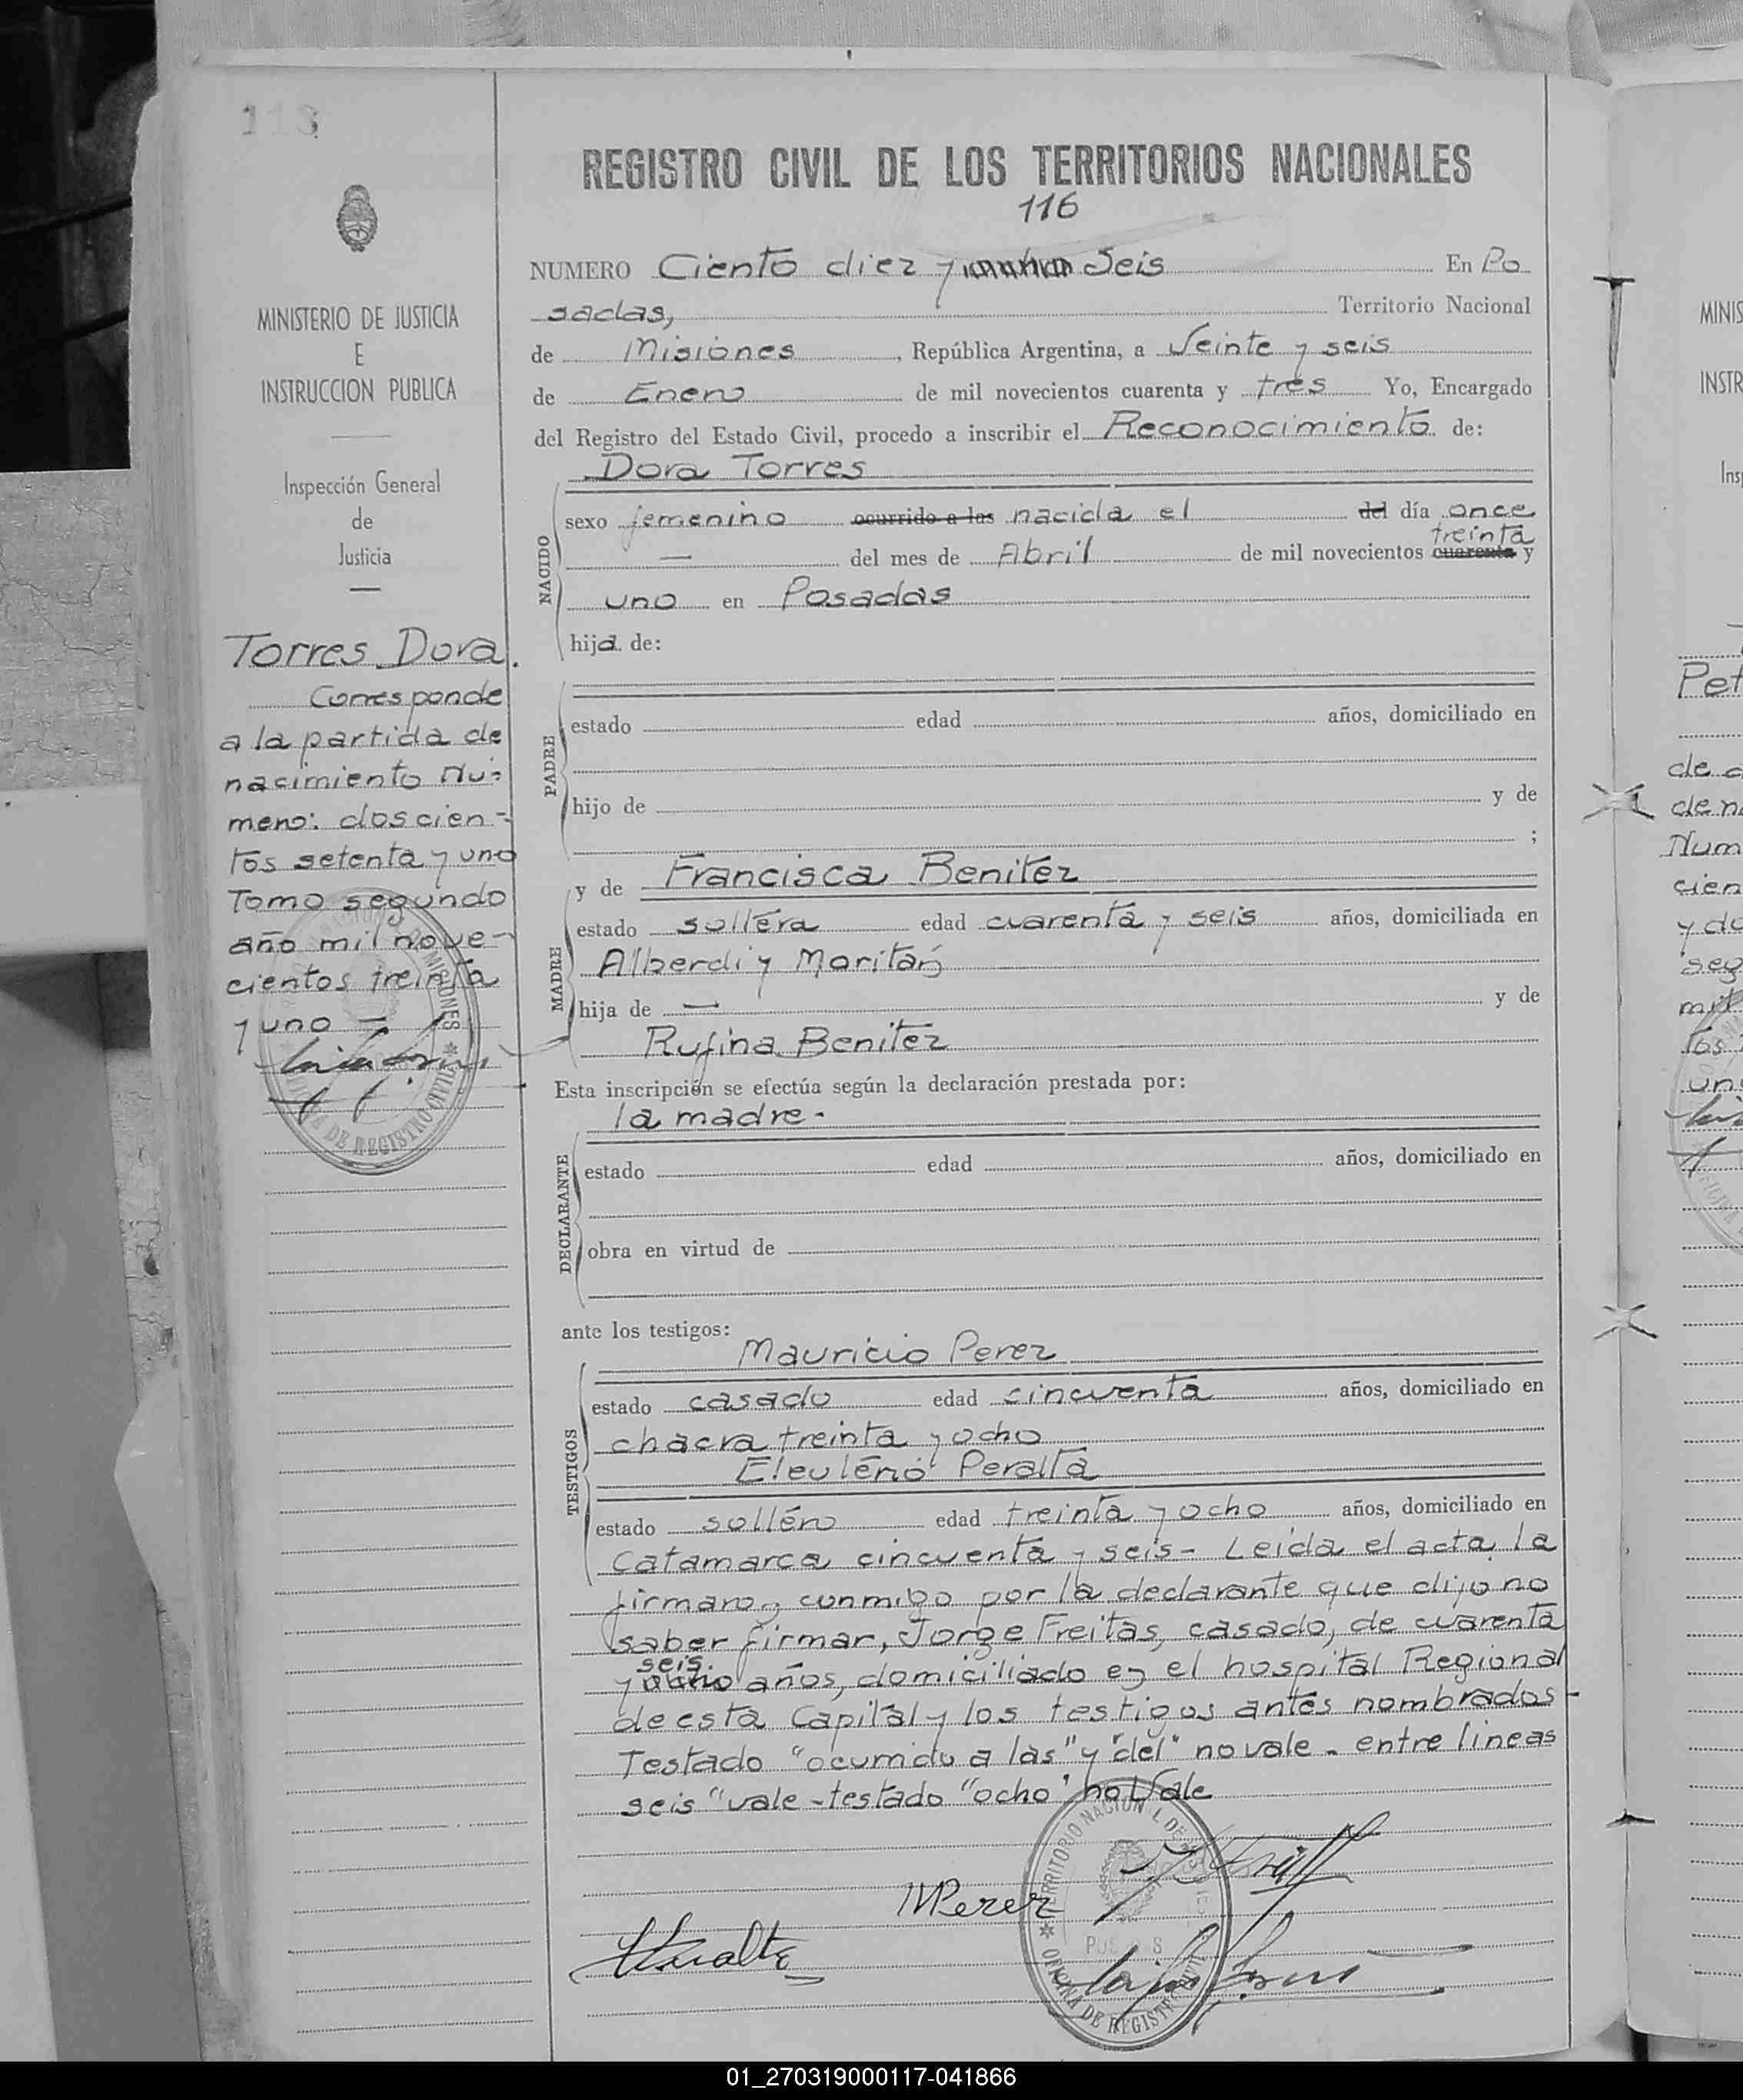 113
REGISTRO CIVIL DE LOS TERRITORIOS NACIONALES
116
MINISTERIO DE JUSTICIA
E
INSTRUCCION PUBLICA
Inspección General
de
Justicia
Torres Dora.
Corresponde
a la partida de
nacimiento Nu-
mero: doscien-
tos setenta y uno
Tomo segundo
año mil nove-
cientos treinta
y uno —
NUMERO Ciento diez y Seis En Po
sadas, Territorio Nacional
de Misiones, República Argentina, a Veinte y seis
de Enero de mil novecientos cuarenta y tres Yo, Encargado
del Registro del Estado Civil, procedo a inscribir el Reconocimiento de:
Dora Torres
NACIDO
sexo femenino ocurrido a las nacida el del día once
treinta
— del mes de Abril de mil novecientos cuarenta y
uno en Posadas
hija de:
PADRE
estado edad años, domiciliado en
hijo de y de
;
MADRE
y de Francisca Benitez
estado soltera edad cuarenta y seis años, domiciliada en
Alberdi y Moritán
hija de — y de
Rufina Benitez
Esta inscripción se efectúa según la declaración prestada por:
la madre-
DECLARANTE
estado edad años, domiciliado en
obra en virtud de
ante los testigos:
TESTIGOS
Mauricio Perez
estado casado edad cincuenta años, domiciliado en
chacra treinta y ocho
Eleuterio Peralta
estado soltero edad treinta y ocho años, domiciliado en
Catamarca cincuenta y seis- Leida el acta, la
firmaron conmigo por la declarante que dijo no
saber firmar, Jorge Freitas, casado, de cuarenta
seis.
y ocho años, domiciliado en el hospital Regional
de esta Capital y los testigos antes nombrados-
Testado "ocurrido a las" y "del" no vale - entre lineas
seis "vale - testado "ocho" no Vale
MPerez
TERRITORIO NACIONAL DE MISIONES
OFICINA DE REGISTRO CIVIL
01_270319000117-041866
MINIS
INSTR
Ins
Pet
de n
Num
cien